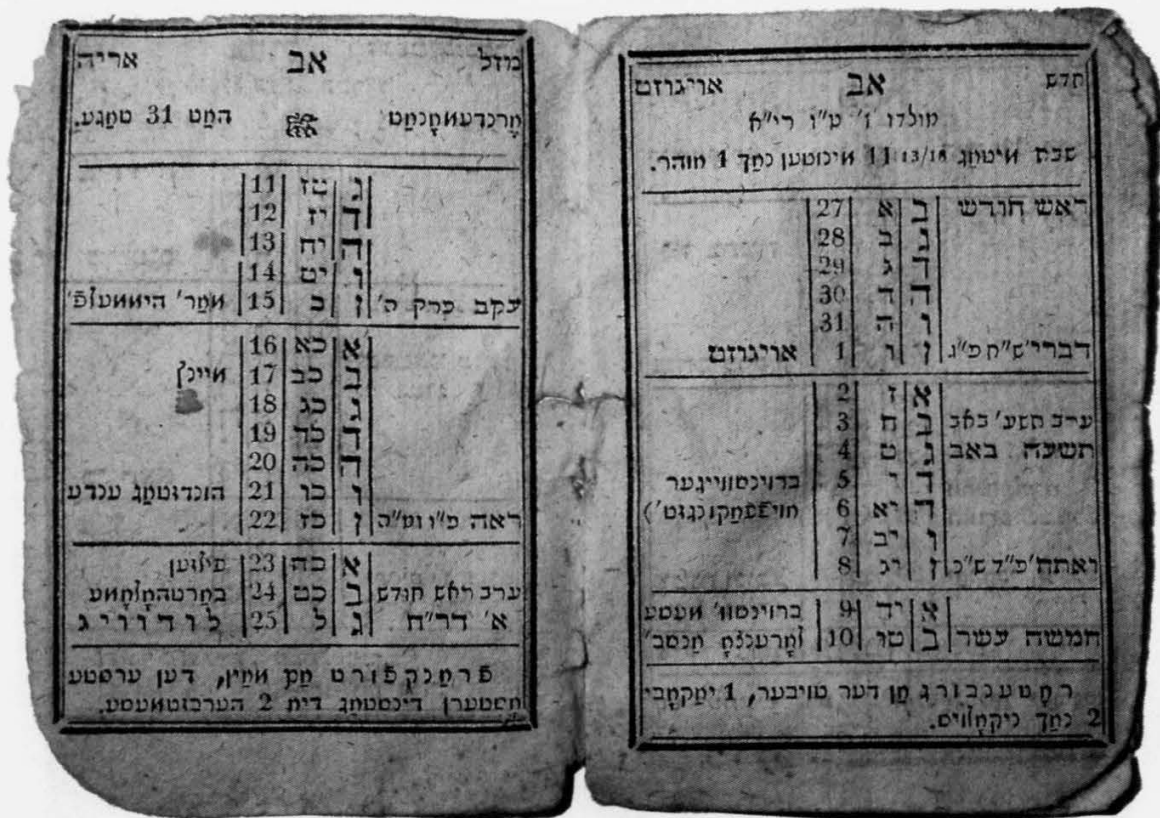 חדש אב אויגוזט
מולדו ז׳ ט״ו רי״א
שבת מיטמַג 13/18 11 מינוטען נמַך 1 מוהר.
ראש חודש ב א 27
ג ב 28
ד ג 29
ה ד 30
ו ה 31
דברי׳ש״ח פ״ג ז ו 1 אויגוזט
א ז 2
ערב תשע׳ באב ב ח 3
תשעה באב ג ט 4
ד י 5 ברוינטווייגער
ה יא 6
ו יב 7
ואתח׳פ״ד ש״נ ז יג 8
א יד 9 ברוינטוו׳ מעסע
חמשה עשר ב טו 10
דער טויבער, 1
2 נמַך ניקמָלויס.
מזל אב אריה
ערנדעמָנמַט המַט 31 טמַגע.
ג טז 11
ד יז 12
ה יח 13
ו יט 14
עקב פרק ה׳ ז כ 15 ממַר׳ היממעלפ׳
א כא 16
ב כב 17 מיינץ
ג כג 18
ד כד 19
ה כה 20
ו כו 21 הונדזטמַג ענדע
ראה פ״ו ומ״ה ז כז 22
א כח 23 פילזען
ערב ראש חודש ב כט 24
א׳ דר״ח ג ל 25 לודוויג
פרמַנקפורט ממַ ממַין, דען ערסטע
דינסטמַג דיא 2 הערבזטמעסע.